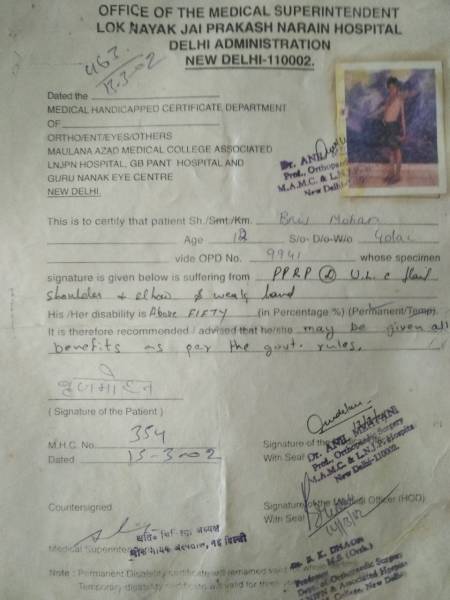 OFFICE OF THE MEDICAL SUPERINTENDENT
LOK NAYAK JAI PRAKASH NARAIN HOSPITAL
DELHI ADMINISTRATION
NEW DELHI-110002.
463
13-3-02
Dated the
MEDICAL HANDICAPPED CERTIFICATE, DEPARTMENT
OF
ORTHO/ENT/EYES/OTHERS
MAULANA AZAD MEDICAL COLLEGE ASSOCIATED
LNJPN HOSPITAL, GB PANT HOSPITAL AND
GURU NANAK EYE CENTRE
NEW DELHI.
Dr. ANIL
Prof., Orthopaedic
M.A.M.C. & L.N.J.
New Delhi
This is to certify that patient Sh./Smt./Km. Brij Mohan
Age 12 S/o- D/o-W/o
vide OPD No. 9941 whose specimen
signature is given below is suffering from PPRP U.L. c
shoulder & elbow & weak hand
His /Her disability is Above FIFTY (in Percentage %) (Permanent/Temp).
It is therefore recommended / advised that he/she may be given all
benefits as per the govt. rules.
बृजमोहन
( Signature of the Patient )
M.H.C. No. 354
Dated 13-3-02
Signature of the
With Seal
Dr. ANIL
Prof., Orthopaedic Surgery
M.A.M.C. & L.N.J.P. Hospital
New Delhi-110002.
Countersigned
Signature of the Medical Officer (HOD)
With Seal
Medical Superintendent
Professor
Deptt. of Orthopaedic Surgery
LNJPN & Associated Hospital
College, New Delhi
Note : Permanent Disability certificate will remained valid
Temporary disability certificate are valid for three